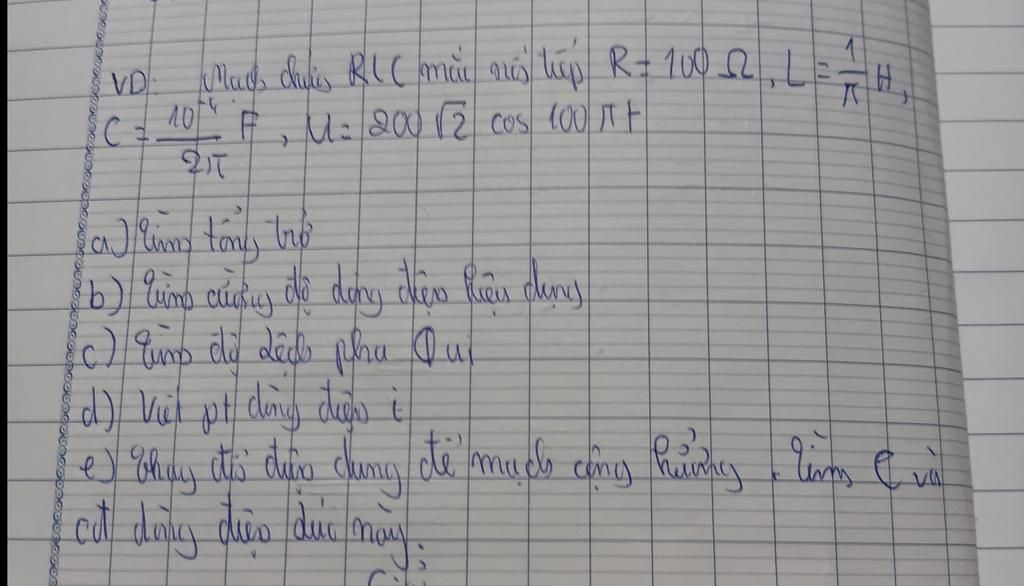 VD: Mạch điện RLC mắc nối tiếp R = 100 Ω, L = 1/π H,
C = 10⁻⁴/2π F, u = 200 √2 cos 100 πt
a) Tìm tổng trở
b) Tìm cường độ dòng điện hiệu dụng
c) Tìm độ lệch pha φ ui
d) Viết pt dòng điện i
e) Thay đổi điện dung để mạch cộng hưởng. Tìm C và
cđ dòng điện lúc này.